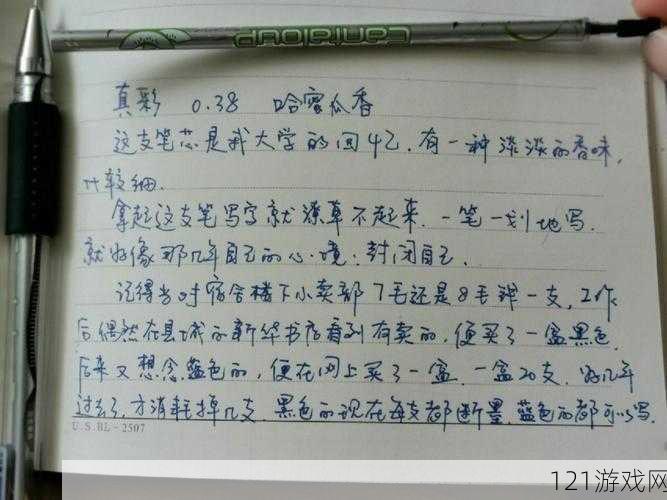 Cantaloup
真彩 0.38 哈密瓜香
这支笔芯是我大学的回忆，有一种淡淡的香味，
比较细.
拿起这支笔写字就潦草不起来，一笔一划地写，
就好像那几年自己的心境：封闭自己.
记得当时宿舍楼下小卖部7毛还是8毛钱一支，工作
后偶然在县城的新华书店看到有卖的，便买了一盒黑色
后来又想念蓝色的，便在网上买了一盒，一盒20支，好几年
过去了，才消耗掉几支，黑色的现在每支都断墨，蓝色的都可以写.
U.S.BL-2507
121游戏网